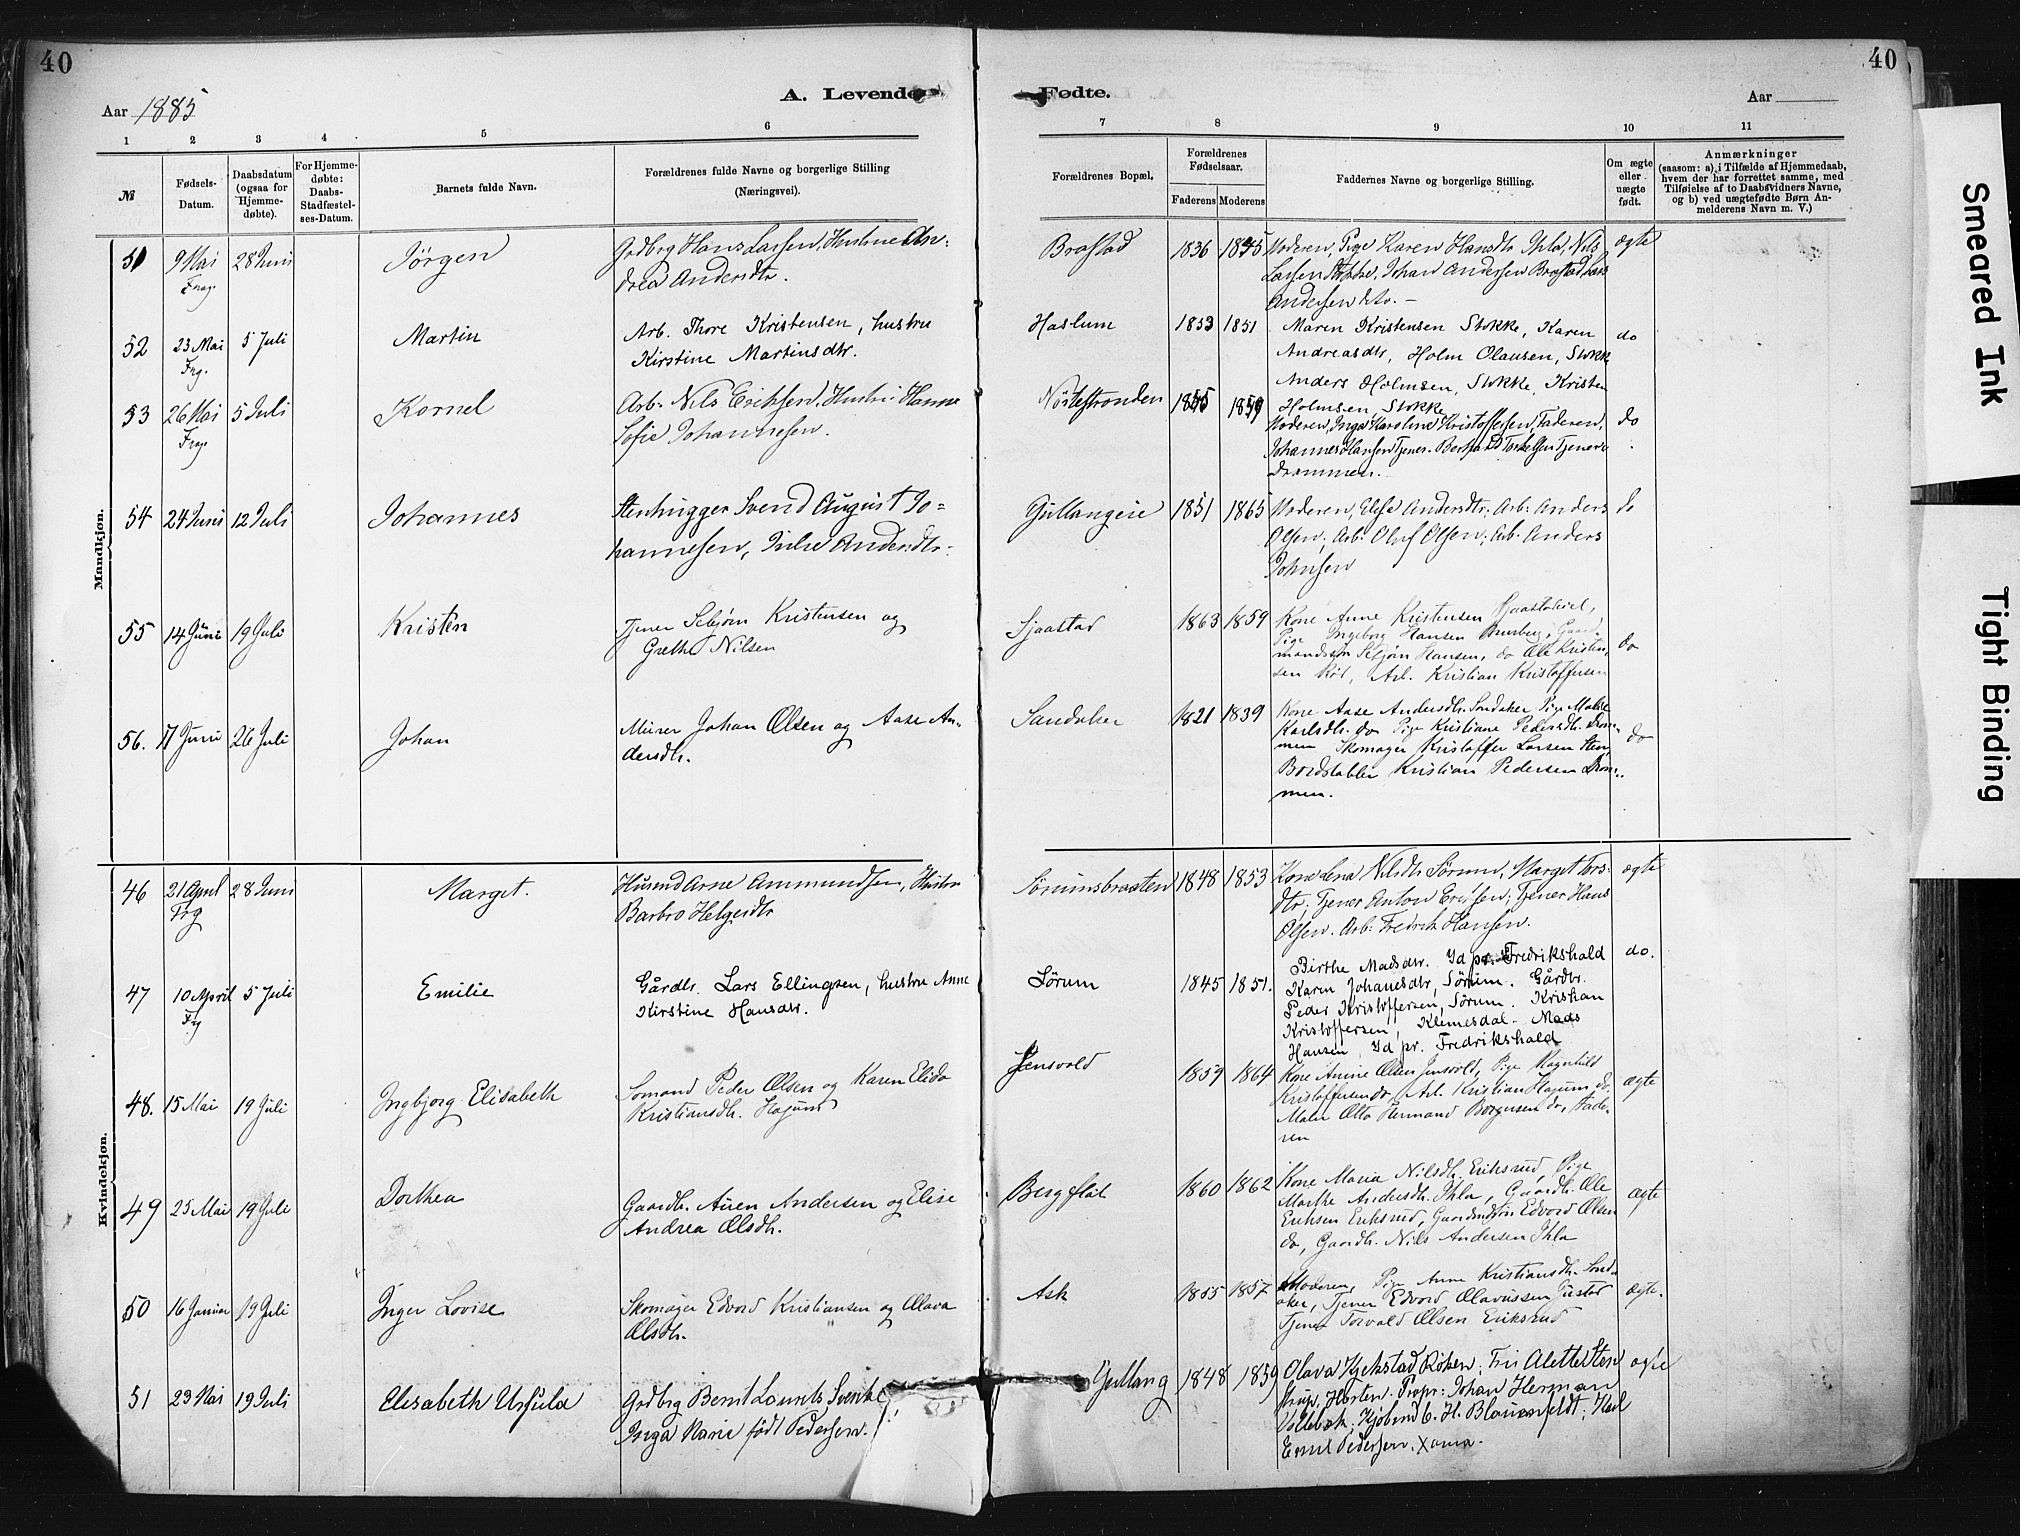 40
40
A. Levende
Fødte.
Aar 1885
Aar
1 2 3 4 5 6 7 8 9 10 11
№
Fødsels-Datum.
Daabsdatum (ogsaa for Hjemmedøbte).
For Hjemmedøbte: Daabs-Stadfæstelses-Datum.
Barnets fulde Navn.
Forældrenes fulde Navne og borgerlige Stilling
(Næringsvei).
Forældrenes Bopæl.
Forældrenes Fødselsaar.
Faderens Moderens
Faddernes Navne og borgerlige Stilling.
Om ægte eller uægte født.
Anmærkninger
(saasom: a) i Tilfælde af Hjemmedaab,
hvem der har forrettet samme, med
Tilføielse af to Daabsvidners Navne,
og b) ved uægtefødte Børn An-
melderens Navn m. V.)
Mandkjøn.
51 9 Mai Frag. 28 Juni Jørgen
Grdbrg Hans Larsen, Hustru An-
drea Andersdtr.
Brastad 1836 1845
Moderen, Pige Karen Hansdtr Ihla, Nils
Larsen Stokke, Johan Andersen Brastad, Lars
Andersen do. –
ægte
52 23 Mai Frg. 5 Juli Martin
Arb. Thore Kristensen, hustru
Kirstine Martinsdtr.
Haslum 1853 1851
Maren Kristensen Stokke, Karen
Andreasdtr, Holm Olausen, Stokke
Anders Holmsen, Stokke, Kristen
Holmsen, Stokke
do
53 26 Mai Frag. 5 Juli Kornel
Arb. Nils Eriksen, Hustru Hanne
Sofie Johannesen.
Nørstestranden 1855 1859
Moderen, Inga Karoline Kristoffersen, Faderen,
Johannes Hansen Tjener. Bernhard Torkelsen Tjener
Drammen.
do
54 24 Juni 12 Juli Johannes
Stenhugger Svend August Jo-
hannesen, Julie Andersdtr.
Gullangeie 1851 1865
Moderen, Elise Andersdtr. Arb: Anders
Olsen, Arb: Oluf Olsen, Arb. Anders
Johnsen
do
55 14 Juni 19 Juli Kristen
Tjener Sebjørn Kristensen og
Grethe Nilsen
Sjaastad 1863 1859
Kone Anne Kristensen Sjaastadeiet,
Pige Ingeborg Hansen Bursberg, Gaard-
mandssøn Sebjørn Hansen, do Ole Kristen-
sen Röd, Arb. Kristian Kristoffersen
do
56. 17 Juni 26 Juli Johan
Murer Johan Olsen og Aase An-
dersdtr.
Sandaker 1821 1839
Kone Aase Andersdtr. Sandaker Pige Malie
Karlsdtr. do Pige Kristiane Pedersdtr. Dram-
men Skomager Kristoffer Larsen Sten
Bordstabler Kristian Pedersen Dram-
men.
do
Kvindekjøn.
46 21 April Frg 28 Juni Marget.
Husmd Arne Ammundsen, Hustru
Barbro Helgesdtr
Sørumsbraaten 1848 1853
Kone Lena Nilsdtr Sørum, Marget Tors-
dtr. Tjener Anton Eriksen; Tjener Hans
Olsen. Arb: Fredrik Hansen.
ægte
47 10 April Frg 5 Juli Emilie
Gårdbr. Lars Ellingsen, hustru Anne
Kirstine Hansdtr.
Sørum 1845 1851.
Birthe Madsdtr. Id pr. Fredrikshald
Karen Johanesdtr, Sørum. Gårdbr.
Peder Kristoffersen, Sørum. Kristian
Kristoffersen, Klemesdal. Mads
Hansen, Id pr. Fredrikshald
do.
48. 15 Mai 19 Juli Ingbjorg Elisabeth
Sømand Peder Olsen og Karen Elida
Kristiansdtr. Hajum
Jensvold 1859 1864
Kone Anine Olsen Jensvold, Pige Ragnhild
Kristoffersen do, Arb. Kristian Hajum do,
Maler Otto Hermand Borgersen do, Fade-
ren
ægte
49 25 Mai 19 Juli Dorthea
Gaardbr. Auen Andersen og Elise
Andrea Olsdtr.
Bergflat 1860 1862
Kone Maria Nilsdtr. Eriksrud, Pige
Marthe Andersdtr. Ihla, Gaardbr. Ole
Eriksen Eriksrud, Gaardmdsøn Edvard Olsen
do, Gaardbr. Nils Andersen Ihla
ægte
50 16 Januar 19 Juli Inger Lovise
Skomager Edvard Kristiansen og Olava
Olsdtr.
Ask 1855 1857
Moderen, Pige Anne Kristiansdtr. Sand-
aker, Tjener Edvard Olavussen Gustad
Tjener Torvald Olsen Eriksrud
ægte.
51 23 Mai 19 Juli Elisabeth Ursula
Grdbrg Bernt Laurits Svenke
Inga Marie født Pedersen.
Gullang 1848 1859
Olava Kjekstad Röken; Fru Alette Sten
strup, Horten. Propr: Johan Herman
Vollebæk, Kjøbmd C. H. Blauenfeldt, Karl
Emil Pedersen, Xania.
ægte
Smeared Ink
Tight Binding